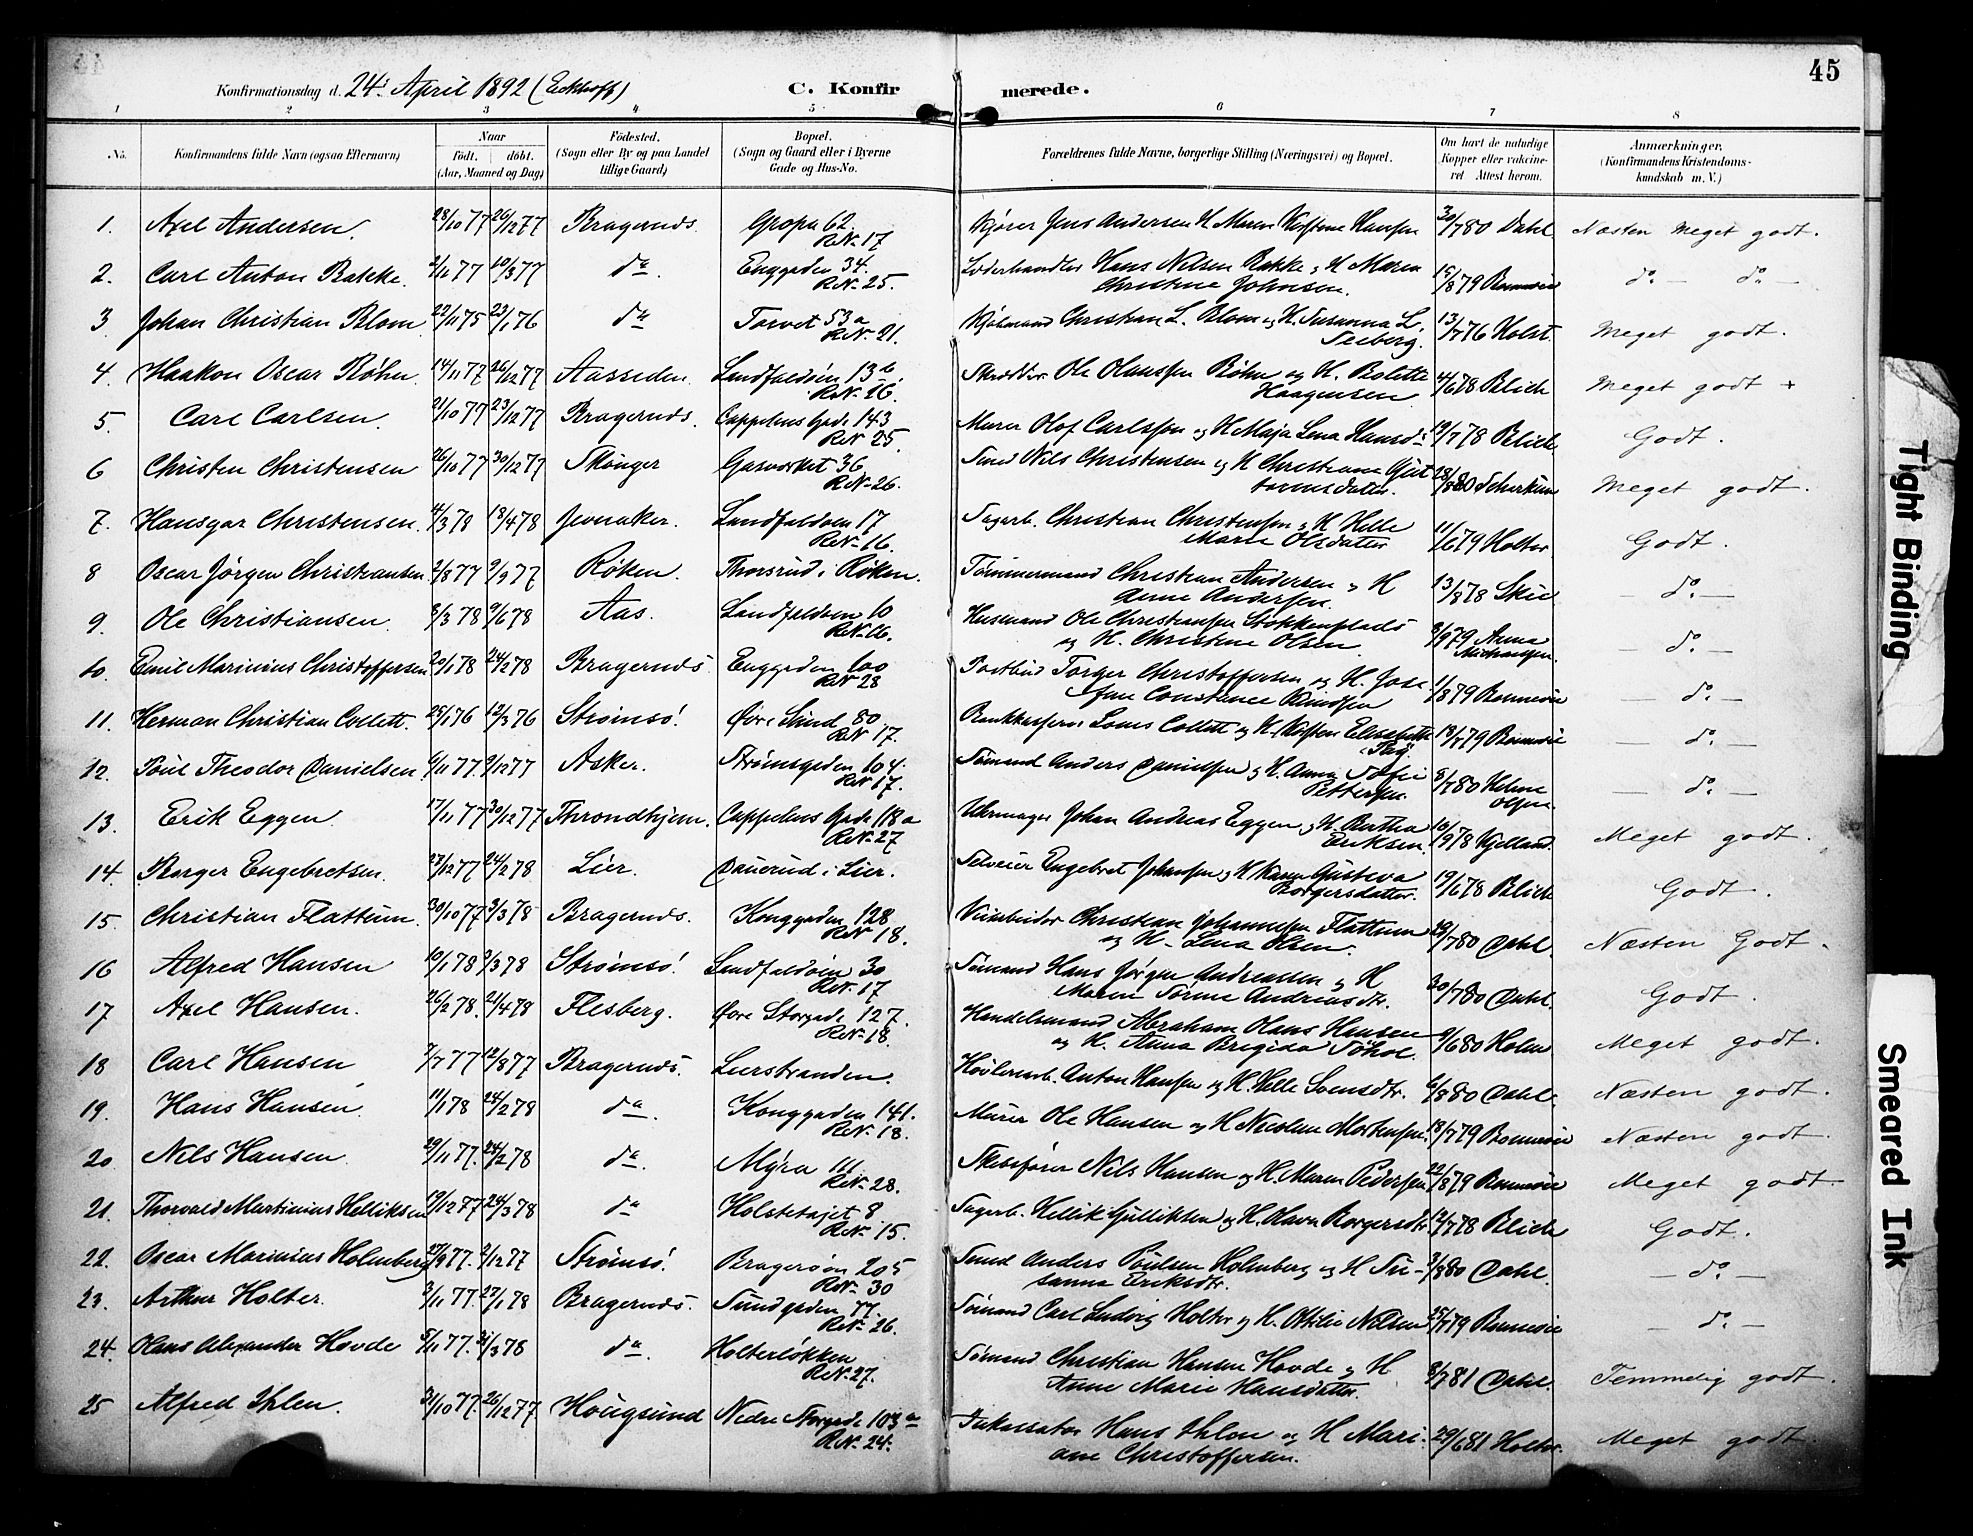 45
Konfirmationsdag d. 24' April 1892 (Eckhoff) C. Konfirmerede.
1 2 3 4 5 6 7 8
No. Konfirmandens fulde Navn (ogsaa Efternavn) Naar födt. döbt. (Aar, Maaned og Dag) Födested. (Sogn eller By og paa Landet tillige Gaard) Bopæl. (Sogn og Gaard eller i Byerne Gade og Hus-No. Forældrenes fulde Navne, borgerlige Stilling (Næringsvei) og Bopæl. Om havt de naturlige Kopper eller vaccineret Attest herom. Anmærkninger. (Konfirmandens Kristendomskundskab m. V.)
1. Axel Andersen. 28/10 77 26/12 77 Bragernæs. Gropa 62. R.N. 17 Kjører Jens Andersen & H. Maren Kirstine Hansen 30/7 80 Dahl Næsten Meget godt.
2. Carl Anton Bakke. 2/11 77 10/3 77 da. Enggaden 34. R.N. 25. Læderhandler Hans Nilsen Bakke & H. Maren Christine Johnsen. 15/8 79 do. — do. —
3 Johan Christian Blom 22/11 75 23/1 76 da Torvet 53a R.N. 21. Kjøbmand Christian L. Blom og H. Susanna L. Seeberg. 13/7 76 Holst. Meget godt.
4. Haakon Oscar Røhn. 14/11 77 26/12 77 Aassiden. Landfaldøen 136. R.N. 16. Ole Olaussen Røhn og H. Bolette Haagensen 4/6 78 Blich Meget godt +
5. Carl Carlsen. 21/10 77 23/12 77 Bragernæs. Cappelens Gade 143 R.N. 25. Murer Olof Carlsson og H. Maja Lena Hansdr 19/7 78 Blich Godt.
6 Christen Christensen 26/10 77 30/12 77 Skoger Gasværket 36 R.N. 26. Smed Nils Christensen og H. Christiane 28/8 80 Meget godt.
7. Hansgar Christensen. 4/3 78 18/4 78 Jevnaker. Landfaldøen 17 R.N. 16. Sagarb. Christian Christensen & H. Helle Marie Olsdatter 11/6 79 Holter Godt.
8 Oscar Jørgen Christiansen 2/8 77 9/9 77 Røken. Thorsrud i Røken. Tømmermand Christian Andersen & H Anne Andersen. 13/8 78 Skie — do. —
9. Ole Christiansen. 8/3 78 9/6 78 Aas. Landfaldøen 10 R.N. 16. Husmand Ole Christiansen Stokkenplads og H. Christine Olsen. 8/9 79 Anna Michaelsen. — do. —
10. Emil Marinius Christoffersen 20/1 78 24/2 78 Bragernæs Enggaden 100 R.N. 28 Postbud Torger Christoffersen og H. Josefine Constance Knudsen 11/8 79 — do. —
11. Herman Christian Collett. 25/1 76 12/3 76 Strømsø. Øvre Sund 80. R.N. 17. Bankkasserer Louis Collett og H. Kirsten Elisabeth 18/7 79 — do. —
12. Poul Theodor Danielsen 6/11 77. 9/12 77 Asker. Strømsgaden 104. R.N. 17. Sømand Anders Danielsen og H. Anna Sofie Pettersen 8/7 80 Helene Olsen — do. —
13. Erik Eggen. 17/11 77 30/12 77 Throndhjem. Cappelens Gade 118a R.N. 27 Uhrmager Johan Andreas Eggen og H. Bertha Eriksen. 10/9 78 Kjelland. Meget godt.
14. Borger Engebretsen 23/12 77 24/2 78 Lier. Dauerud i Lier. Selveier Engebret Johansen og H. Karen Gustava Borgersdatter. 19/6 78 Blich Godt.
15. Christian Flattum. 30/10 77 3/3 78 Bragernæs. Konggaden 128 R.N. 18. Christian Johannesen Flattum og H. Lena Olsen. 29/7 80 Dahl. Næsten Godt.
16 Alfred Hansen 10/1 78 9/3 78 Strømsø. Landfaldøen 30 R.N. 17 Sømand Hans Jørgen Andreassen og H Maren Sørine Andreasdtr. 30/7 80 Dahl. Godt.
17 Axel Hansen. 26/2 78. 21/4 78 Flesberg. Øvre Storgade 127. R.N. 18. Handelsmand Abraham Olaus Hansen og H. Anna Brigida Søhol. 9/6 80 Holm Meget godt.
18 Carl Hansen 7/7 77 12/8 77 Bragernæs. Lierstranden. Høvleriarb. Anton Hansen og H. Helle Svensdtr. 6/8 80 Dahl. Næsten godt.
19. Hans Hansen. 11/1 78 24/2 78 da. Konggaden 141. R.N. 18. Murer Ole Hansen og H Nicoline Mortensen. 18/7 79 Næsten godt.
20 Nils Hansen. 29/11 77. 24/2 78 da. Myra 111. R.N. 28. Skibsfører Nils Hansen og H. Maren Pedersen 22/8 79 Meget godt.
21. Thorvald Martinius Helliksen 19/12 77 24/3 78 da Holstetajet 8 R.N. 15. Sagarb. Hellik Gulliksen og H. Olava Borgersdtr 12/7 78 Blich Godt.
22. Oscar Marinius Holmberg 27/9 77. 2/12 77 Strømsø. Bragerøen 205 R.N. 30 Smed Anders Poulsen Holmberg og H Susanna Eriksdtr. 3/8 80 Dahl. — do. —
23. Arthur Holter. 3/11 77. 27/1 78 Bragernæs. Sundgaden 77. R.N. 26. Sømand Carl Ludvig Holter og H. Ottilie Nilsen 25/7 79 — do. —
24. Olaus Alexander Hovde 5/11 77. 31/3 78 da. Holterløkken R.N. 27. Sømand Christian Hansen Hovde og H Anne Marie Hansdatter. 8/7 81 Dahl. Temmelig godt.
25 Alfred Ihlen. 31/10 77. 26/12 77 Hougsund Nedre Storgade 103a R.N. 24. Inkassator Hans Ihlen og H Mariane Christoffersen. 29/6 81 Holter. Meget godt.
Tight Binding
Smeared Ink